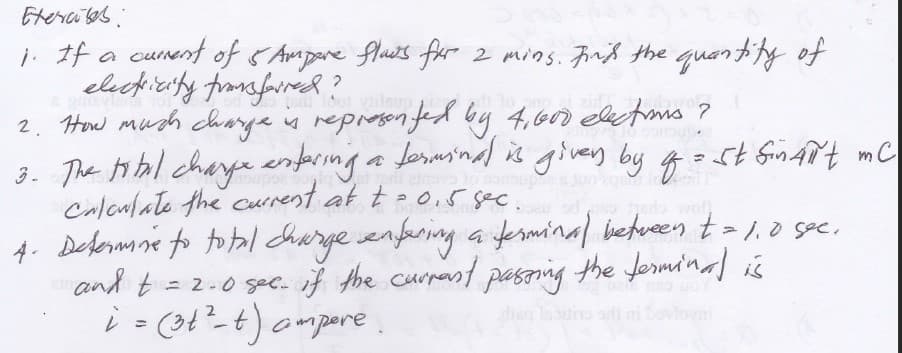 Exercises:
1. If a current of 5 Ampere flows for 2 mins. Find the quantity of
electricity transferred?
2. How much charge is represented by 4,600 electrons?
3. The total charge entering a terminal is given by q = 5t Sin 4πt mC
Calculate the current at t = 0.5 sec.
4. Determine to total charge entering a terminal between t = 1.0 sec.
and t = 2.0 sec. if the current passing the terminal is
i = (3t² - t) ampere.